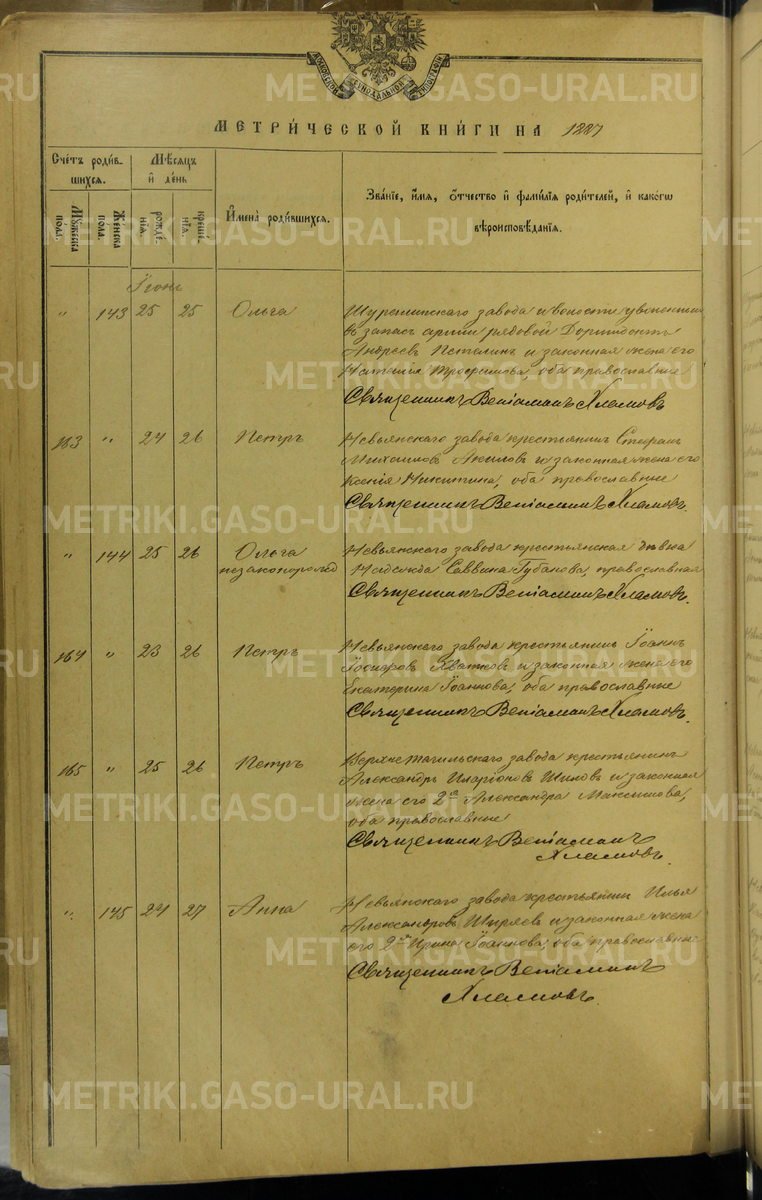 МОСКОВСКОЙ СѴНОДАЛЬНОЙ ТИПОГРАФІИ
МЕТРИ́ЧЕСКОЙ КНИ́ГИ НА 1887
Сче́тъ роди́в-
шихся.
Мꙋ́жеска
пола.
Же́нска
пола.
Мѣ́сяцъ
и҆ де́нь
рожде́-
нїя.
креще́-
нїя.
И҆мена̀ роди́вшихся.
Зва́нїе, и҆́мя, ѻ҆́тчество и҆ фами́лїя роди́телей, и҆ како́гѡ
вѣроисповѣ́данїя.
Іюнь
„ 143 25 25 Ольга
Шуралинскаго завода и волости уволенный
въ запасъ арміи рядовой Доримедонтъ
Андреевъ и законная жена его
Трофимова, оба православные
Священникъ Веніаминъ Хламовъ
163 „ 24 26 Петръ
Невьянскаго завода крестьянинъ Стефанъ
Михаиловъ и законная жена его
Ксенія Никитина, оба православные
Священникъ Веніаминъ Хламовъ.
„ 144 25 26 Ольга
незаконорожд
Невьянскаго завода крестьянская дѣвка
Надежда Саввина Губанова, православная
Священникъ Веніаминъ Хламовъ.
164 „ 23 26 Петръ
Невьянскаго завода крестьянинъ Іоаннъ
и законная жена его
Екатерина Іоаннова, оба православные
Священникъ Веніаминъ Хламовъ.
165 „ 25 26 Петръ
Верхнетагильскаго завода крестьянинъ
Александръ Иларіоновъ Шиловъ и законная
жена его 2ª Александра Максимова,
оба православные
Священникъ Веніаминъ
Хламовъ.
„ 145 24 27 Анна
Невьянскаго завода крестьянинъ Илья
Александровъ Ширяевъ и законная жена
его Ирина Іоаннова, оба православные
Священникъ Веніаминъ
Хламовъ.
METRIKI.GASO-URAL.RU